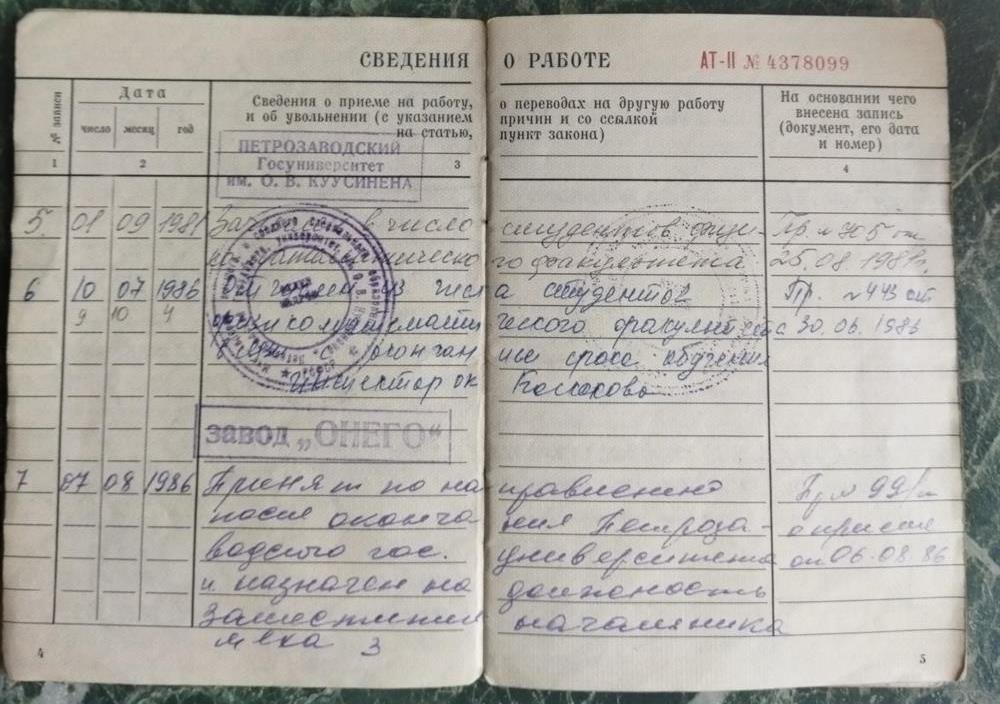 СВЕДЕНИЯ О РАБОТЕ АТ-II № 4378099
№ записи
Дата
число месяц год
Сведения о приеме на работу, о переводах на другую работу
и об увольнении (с указанием причин и со ссылкой
на статью, пункт закона)
На основании чего
внесена запись
(документ, его дата
и номер)
1 2 3 4
ПЕТРОЗАВОДСКИЙ
Госуниверситет
им. О. В. КУУСИНЕНА
5 01 09 1981 в число студентов физи- Пр. № 705 от
го факультета 25.08 1981г.
6 10 07 1986 из числа студентов Пр. № 443 от
9 10 4 физикоматематического факультета 30.06.1986
в связи с окончанием срока обучения
Инспектор ок
завод „ОНЕГО“
7 07 08 1986 Принят по направлению Пр №
после окончания Петроза- о приеме
водского гос. университета от 06.08.86
и назначен на должность
заместителя начальника
цеха 3
4 5